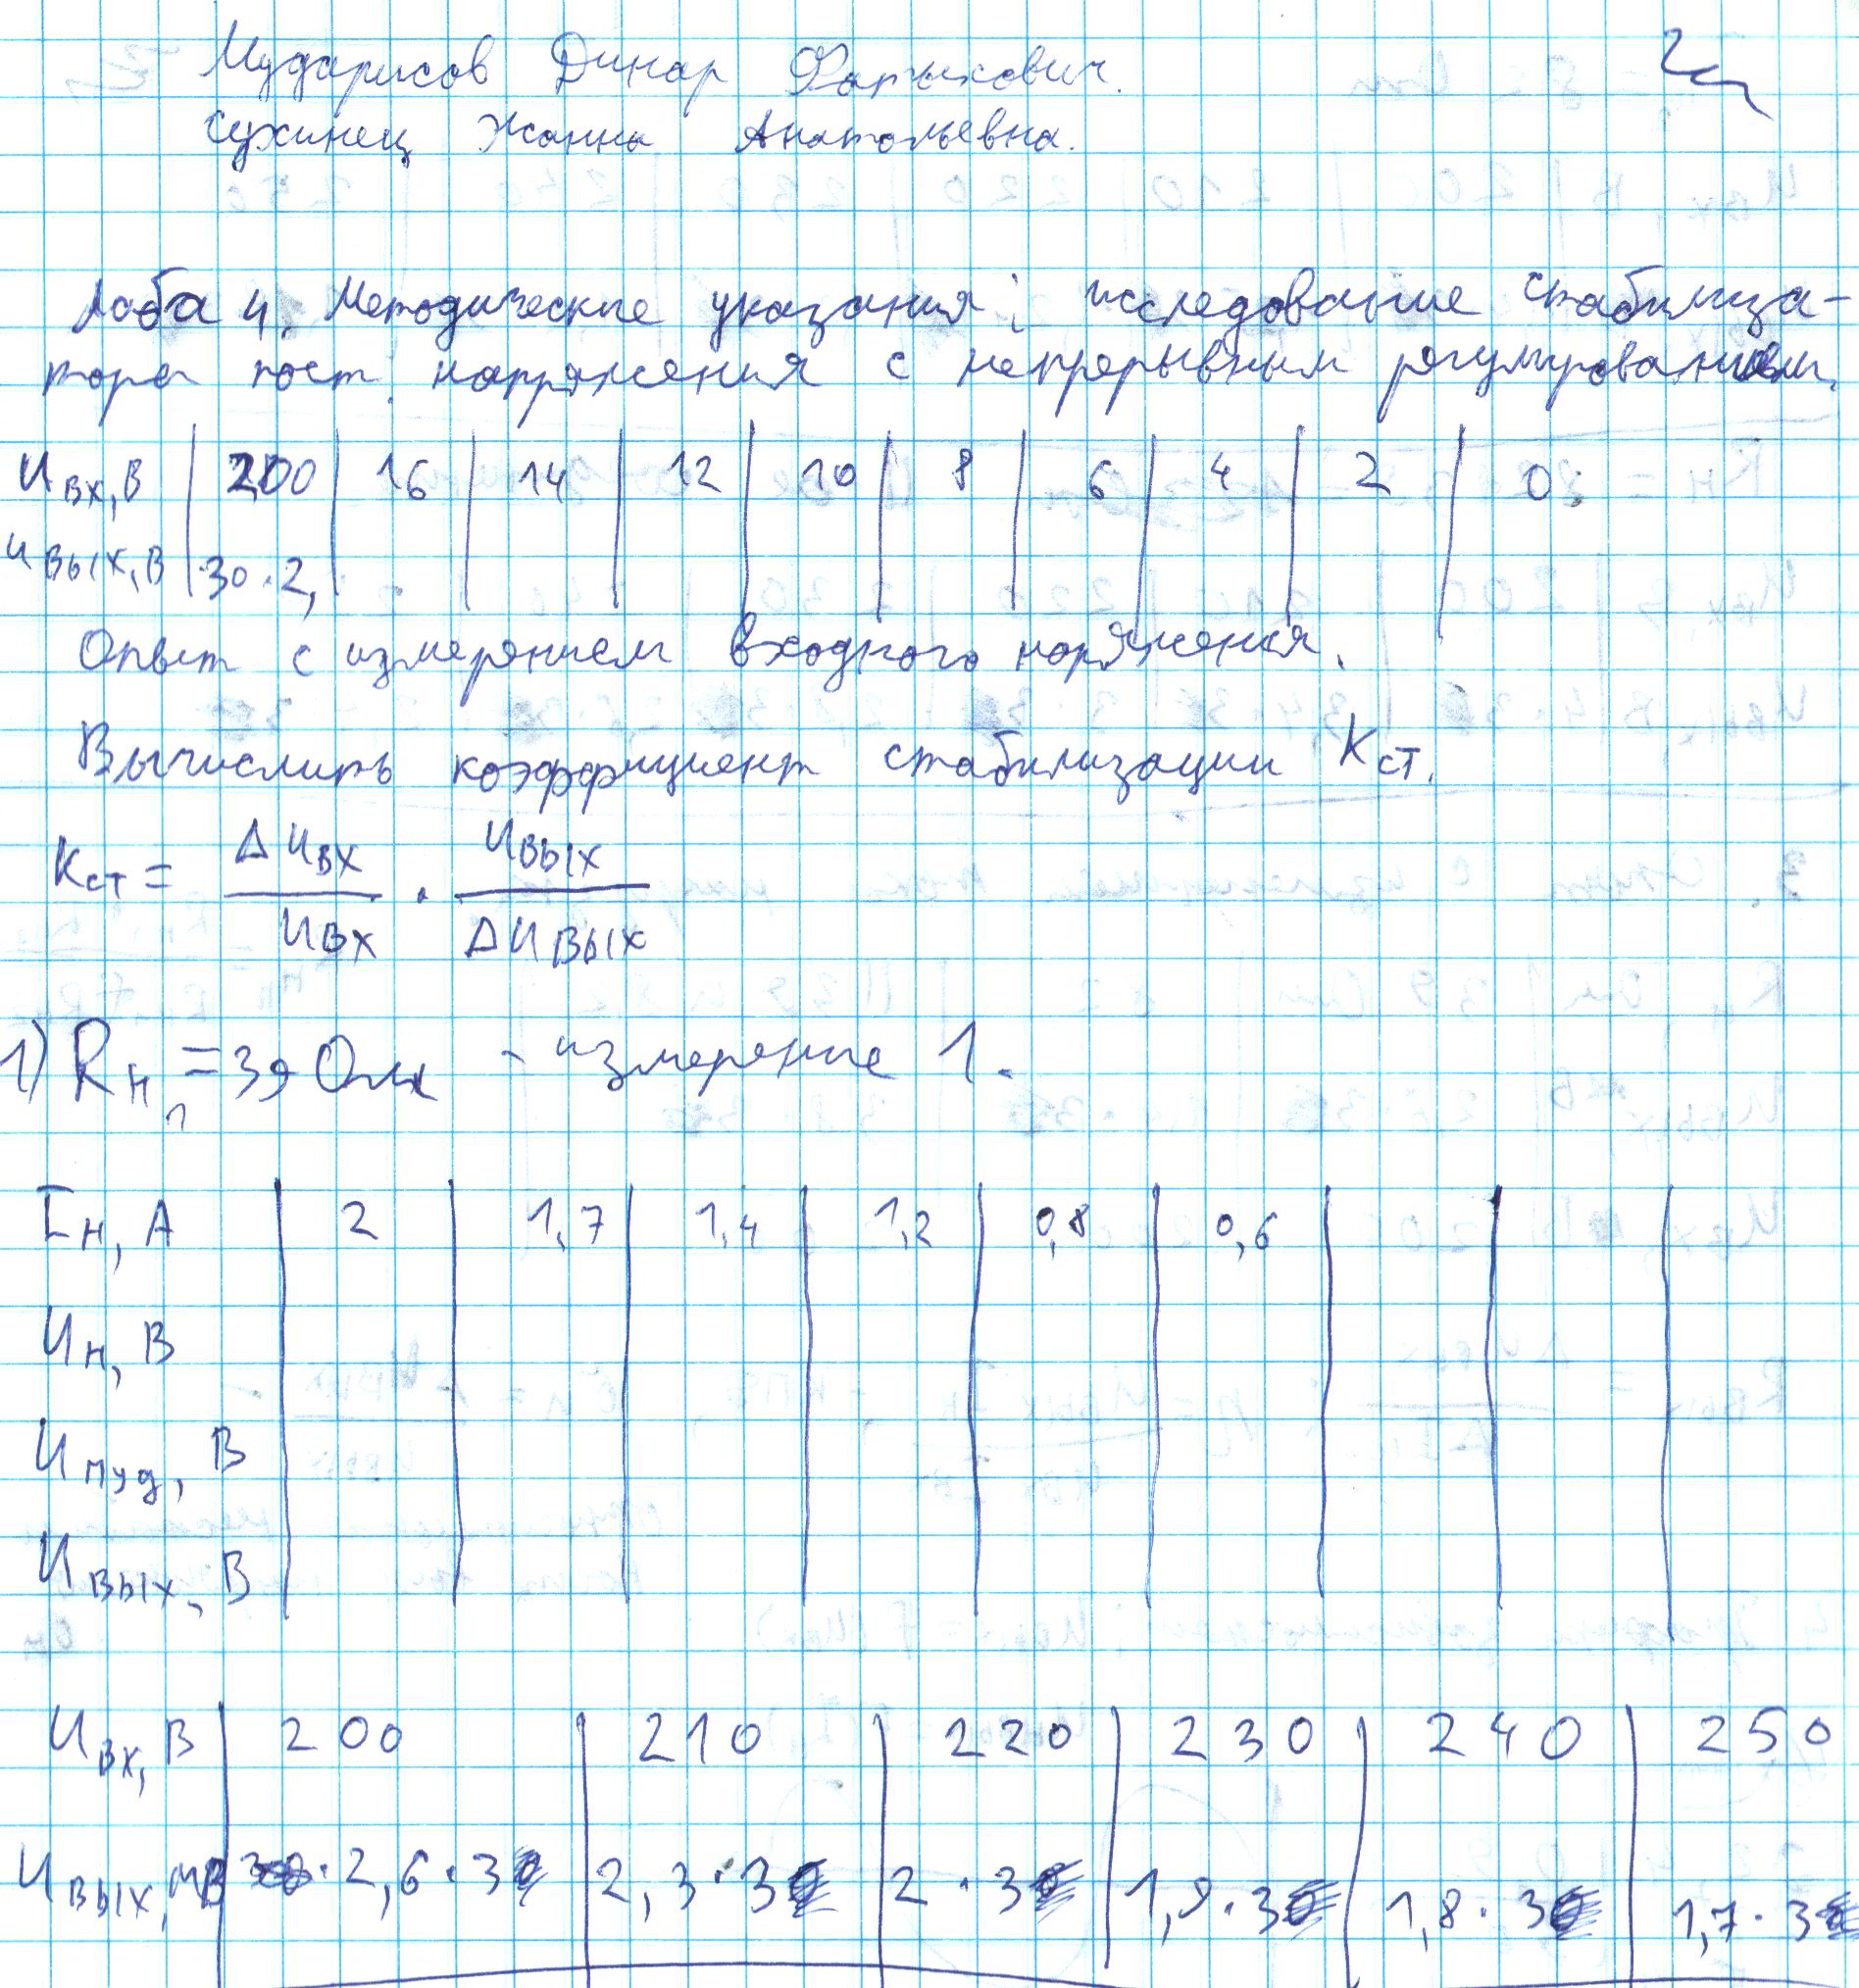 Мударисов Динар Фатыхович.
Сухинец Жанна Анатольевна.
Лаба 4. Методические указания: исследование стабилиза-
тора пост. напряжения с непрерывным регулированием.
Uвх,В | 200 | 16 | 14 | 12 | 10 | 8 | 6 | 4 | 2 | 0
Uвых,В | 30·2,
Опыт с измерением входного наряжения.
Вычислить коэффициент стабилизации Kст.
Kст = ΔUвх / Uвх · Uвых / ΔUвых
1) Rн1 = 39 Ом - измерение 1.
Iн, А | 2 | 1,7 | 1,4 | 1,2 | 0,8 | 0,6
Uн, В
Uпуд, В
Uвых, В
Uвх, В | 200 | 210 | 220 | 230 | 240 | 250
Uвых, мВ | 2,6·3 | 2,3·3 | 2·3 | 1,9·3 | 1,8·3 | 1,7·3